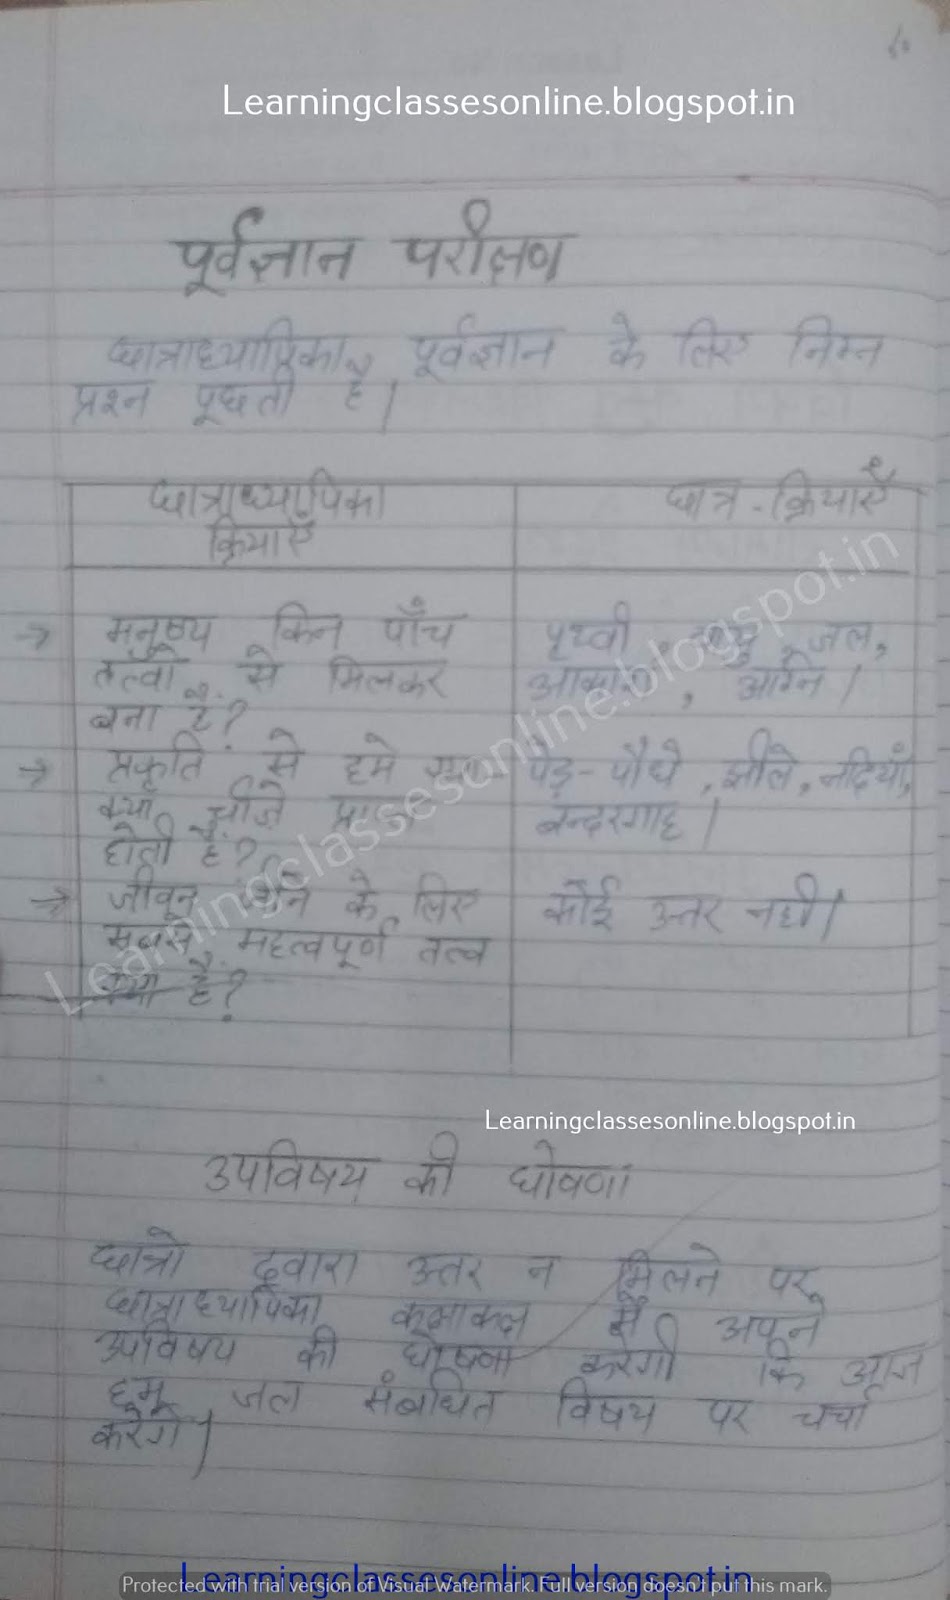 Learningclassesonline.blogspot.in
पूर्वज्ञान परीक्षण
छात्राध्यापिका पूर्वज्ञान के लिए निम्न
प्रश्न पूछती है।
छात्राध्यापिका
क्रियाएँ
छात्र - क्रियाएँ
→ मनुष्य किन पाँच
तत्वों से मिलकर
बना है?
पृथ्वी, वायु, जल,
आकाश, अग्नि।
→ प्रकृति से हमे क्या-
क्या चीजे प्राप्त
होती है?
पेड़-पौधे, झीले, नदियाँ,
बन्दरगाह।
→ जीवन जीने के लिए
सबसे महत्वपूर्ण तत्व
क्या है?
कोई उत्तर नही।
Learningclassesonline.blogspot.in
Learningclassesonline.blogspot.in
उपविषय की घोषणा
छात्रो द्वारा उत्तर न मिलने पर
छात्राध्यापिका कक्षाकक्ष में अपने
उपविषय की घोषणा करेगी कि आज
हम जल संबधित विषय पर चर्चा
करेंगे।
Learningclassesonline.blogspot.in
Protected with trial version of Visual Watermark. Full version doesn't put this mark.